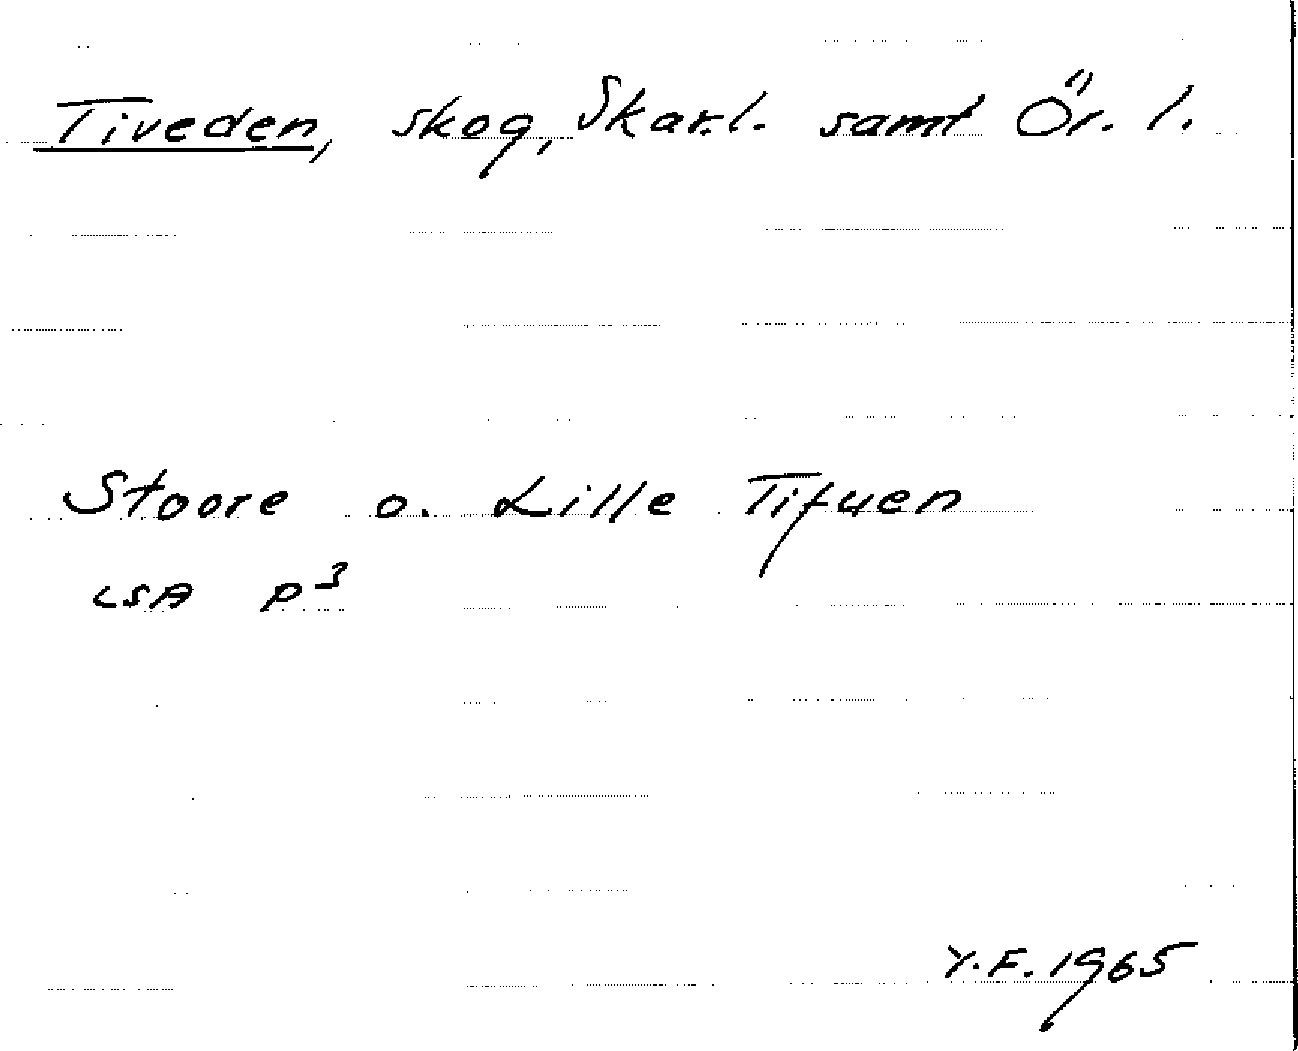 Tiveden, skog, Skar.l. samt Ör. l.
Stoore o. Lille Tifuen
LSA P³
Y.F. 1965